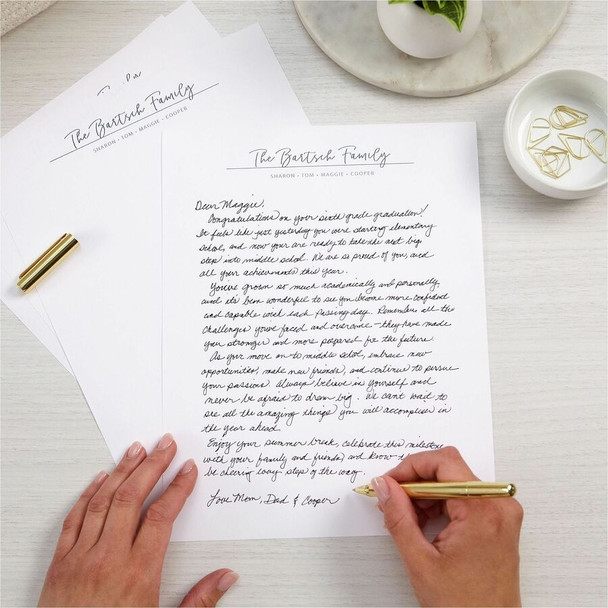 The Bartsch Family
SHARON • TOM • MAGGIE • COOPER
The Bartsch Family
SHARON • TOM • MAGGIE • COOPER
Dear Maggie,
Congratulations on your sixth grade graduation!
It feels like just yesterday you were starting elementary
school, and now your are ready to take the next big
step into middle school. We are so proud of you, and
all your achievements this year.
You've grown so much academically and personally,
and it's been wonderful to see you become more confident
and capable with each passing day. Remember all the
challenges you've faced and overcome - they have made
you stronger and more prepared for the future.
As your move on to middle school, embrace new
opportunities, make new friends, and continue to pursue
your passions. Always believe in yourself and
never be afraid to dream big. We can't wait to
see all the amazing things you will accomplish in
the year ahead.
Enjoy your summer break, celebrate this milestone
with your family and friends, and know th
be cheering every step of the way.
Love Mom, Dad & Cooper